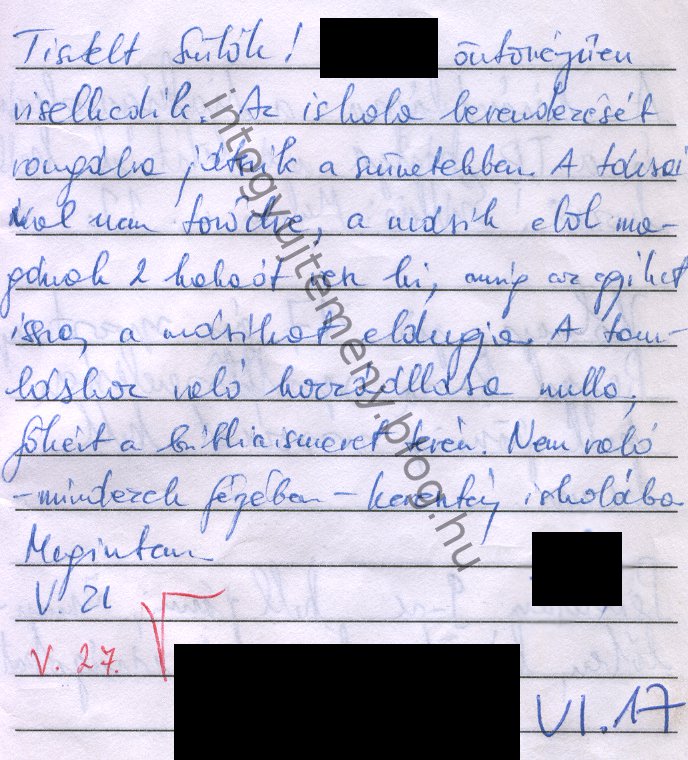 Tisztelt Szülők! öntörvényűen
viselkedik. Az iskola berendezését
rongálva játszik a szünetekben. A társai
kal nem törődve, a másik elől ma-
gának 2 kakaót vesz ki, amíg az egyiket
issza, a másikat eldugja. A tanu-
láshoz való hozzáállása nulla,
főként a bibliaismeret terén. Nem való
-mindezek fényében- keresztény iskolába
Megintem
V. 21
V. 27.
VI. 17
integyujtemeny.blog.hu